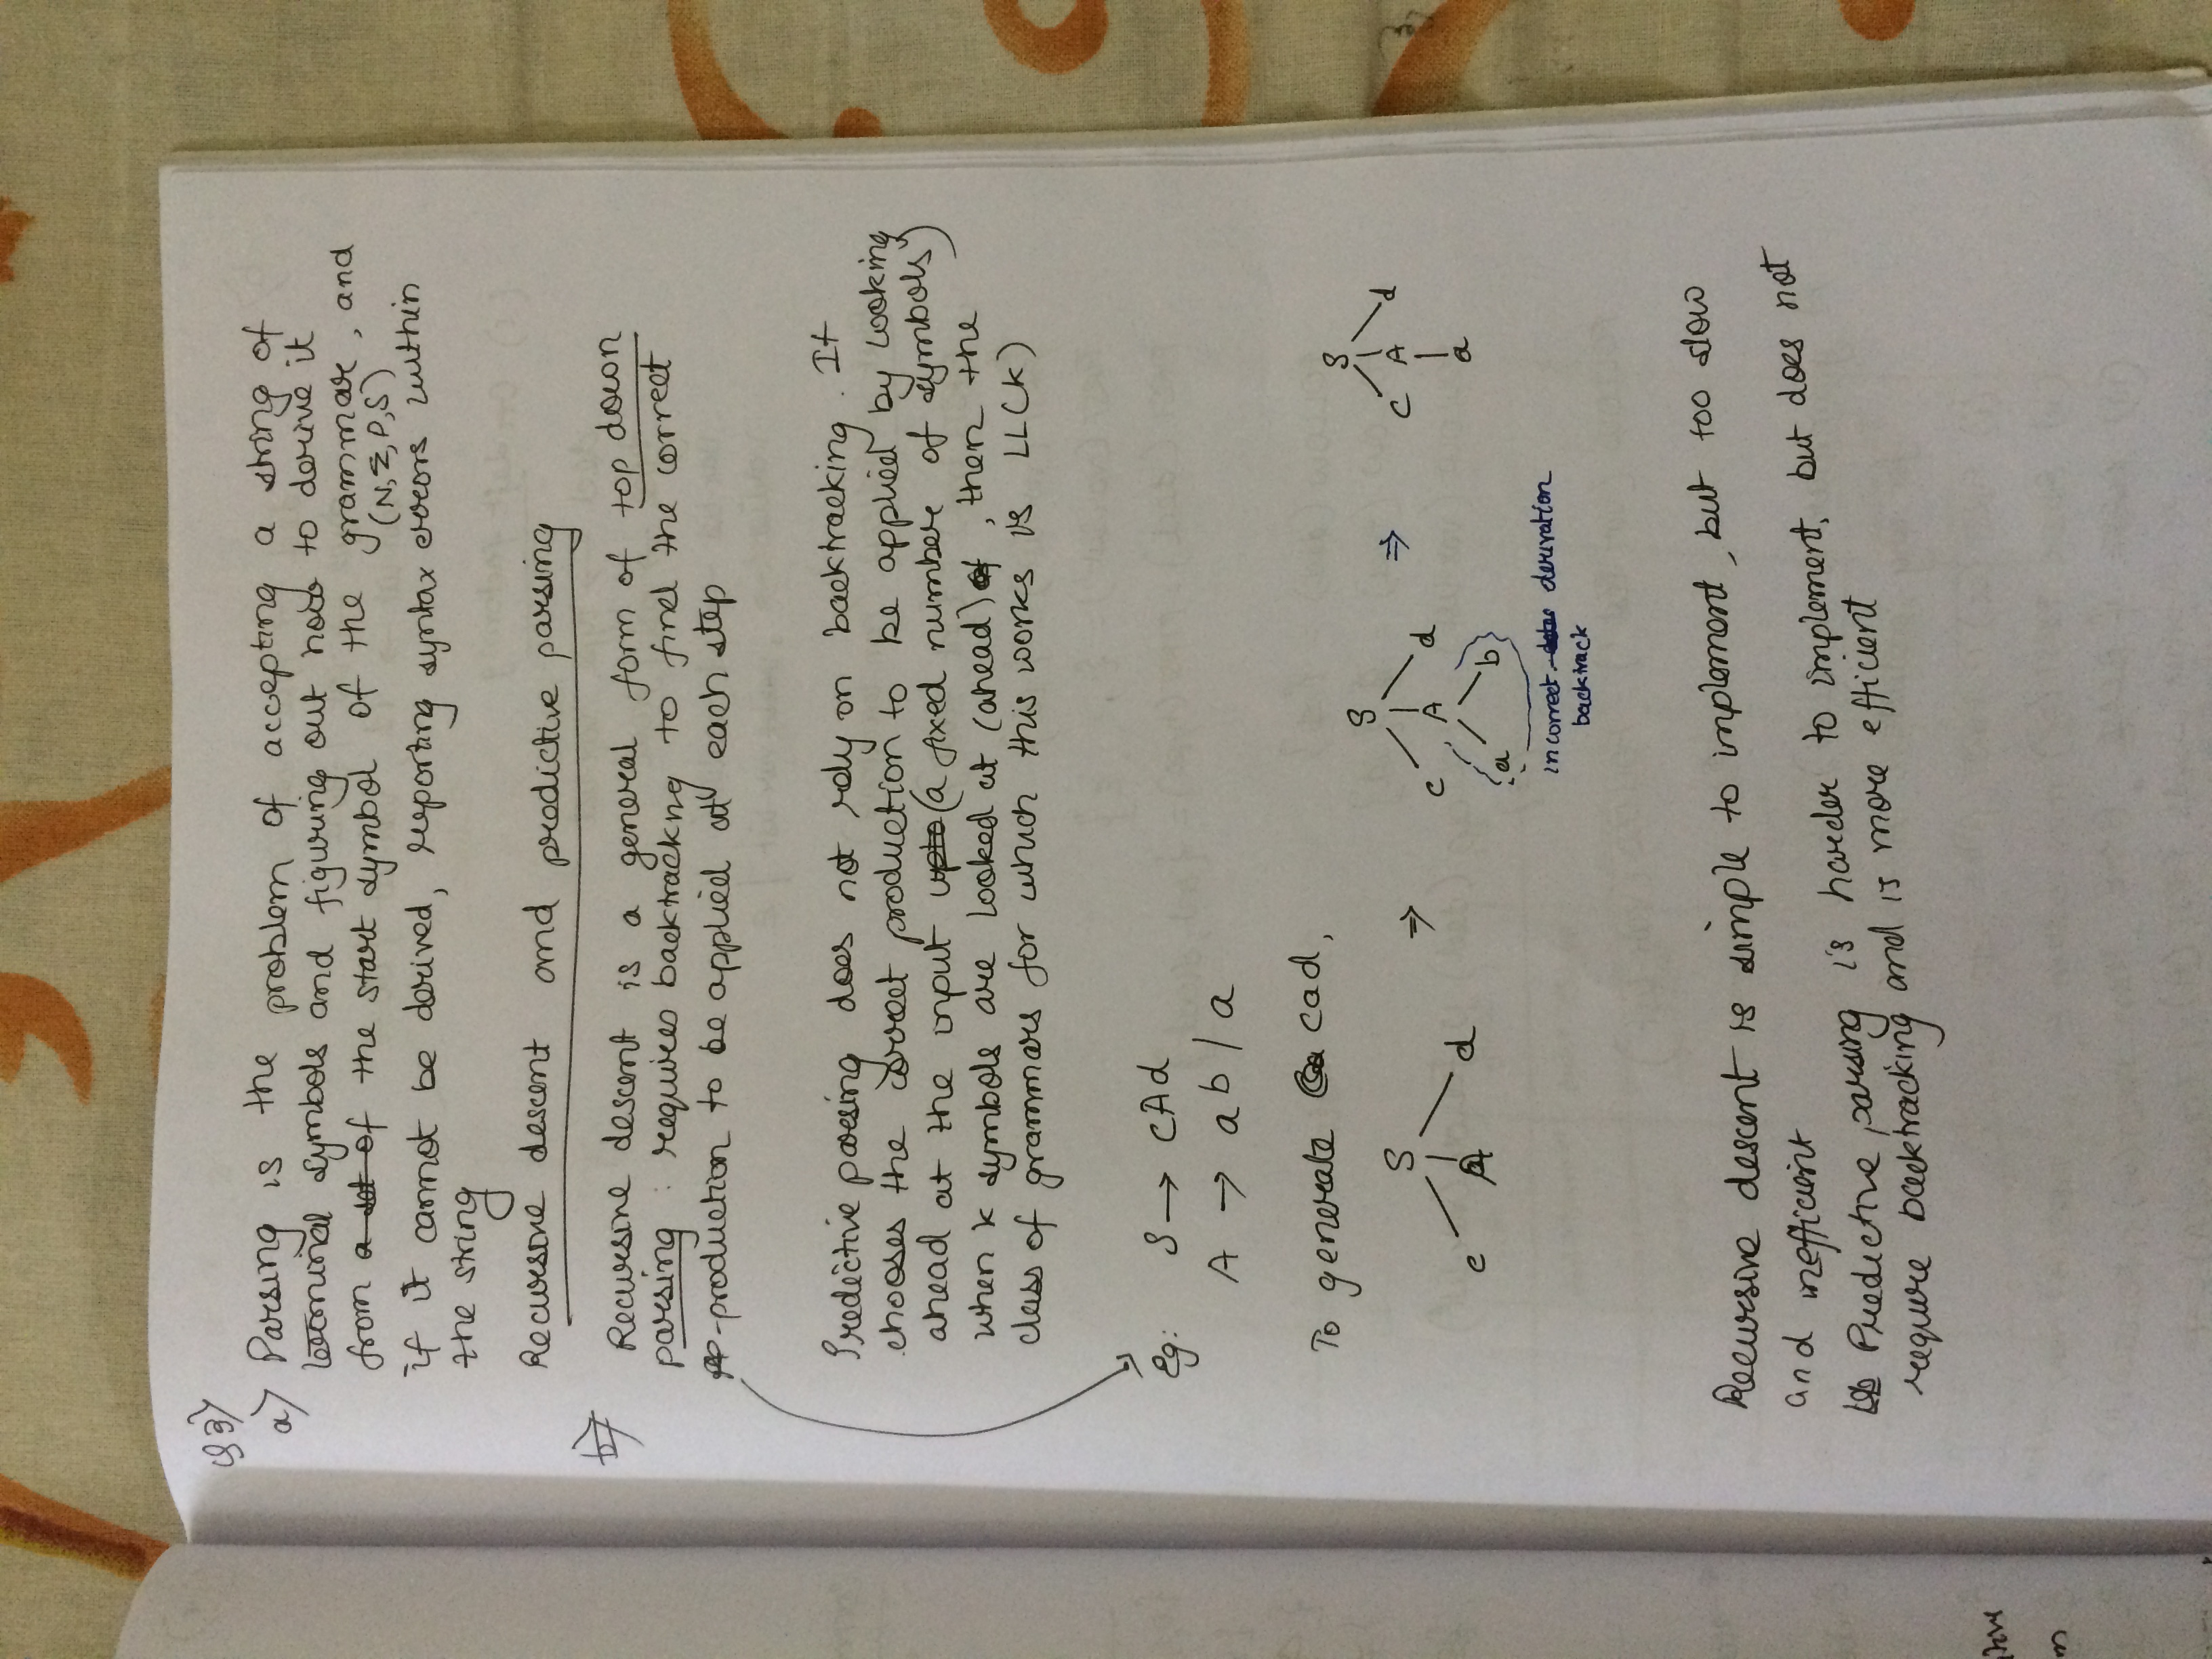 Q3)
a) Parsing is the problem of accepting a string of
terminal symbols and figuring out how to derive it
from a set of the start symbol of the grammar, and
(N, Σ, P, S)
if it cannot be derived, reporting syntax errors within
the string
Recursive descent and predictive parsing
b)
Recursive descent is a general form of top down
parsing : requires backtrackng to find the correct
production to be applied at each step
Predictive parsing does not rely on backtracking. It
chooses the correct production to be applied by looking
ahead at the input upto (a fixed number of symbols)
when k symbols are looked at (ahead) of, then the
class of grammars for which this works is LL(k)
Eg: S → cAd
A → ab / a
To generate cad,
S ⇒ S ⇒ S
c A d c A d c A d
a b a
incorrect derivation
backtrack
Recursive descent is simple to implement, but too slow
and inefficient
Predictive parsing is harder to implement, but does not
require backtracking and is more efficient